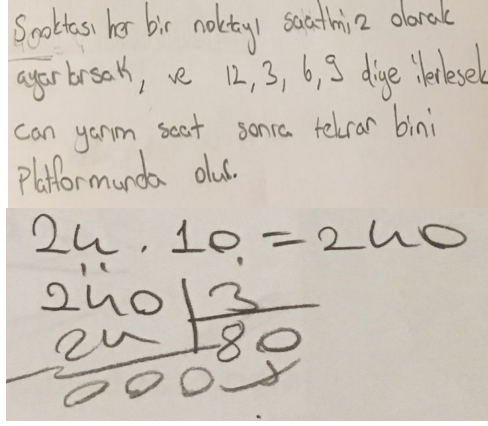 S noktası her bir noktayı saatmiz olarak
ayarlarsak, ve 12, 3, 6, 9 diye ilerlesek
can yarım saat sonra tekrar bini
Platformunda olur.
24 . 10 = 240
240 | 3
24 | 80
000